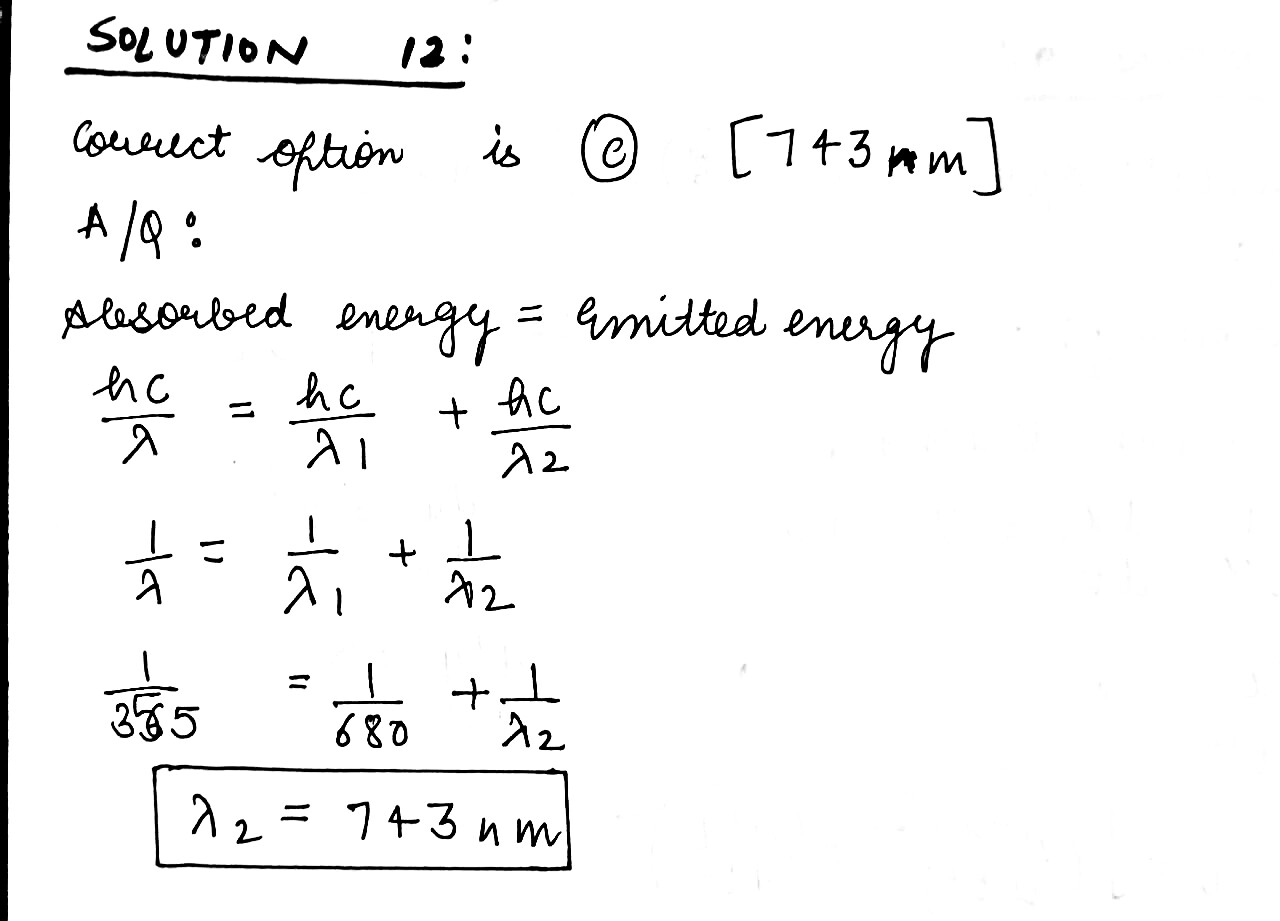 SOLUTION 12:
Correct option is (c) [743 nm]
A/Q:
Absorbed energy = Emitted energy
hc/λ = hc/λ1 + hc/λ2
1/λ = 1/λ1 + 1/λ2
1/355 = 1/680 + 1/λ2
λ2 = 743 nm